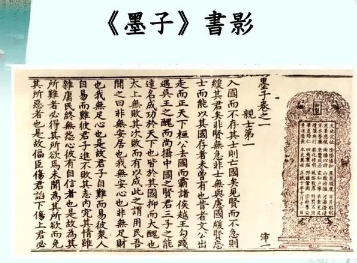 《墨子》書影
墨子卷之一
親士第一
入國而不存其士則亡國矣見賢而不急則
緩其君矣非賢無急非士無與慮國緩賢忘
士而能以其國存者未曾有也昔者文公出
走而正天下桓公去國而霸諸侯越王勾踐
遇吳王之醜而尚攝中國之賢君三子之能
達名成功於天下也皆於其國抑而大醜也
太上無敗其次敗而有以成此之謂用民吾
聞之曰非無安居也我無安心也非無足財
也我無足心也是故君子自難而易彼眾人
自易而難彼君子進不敗其志內究其情雖
雜庸民終無怨心彼有自信者也是故為其
所難者必得其所欲焉未聞為其所欲而免
其所惡者也是故偪臣傷君諂下傷上君必